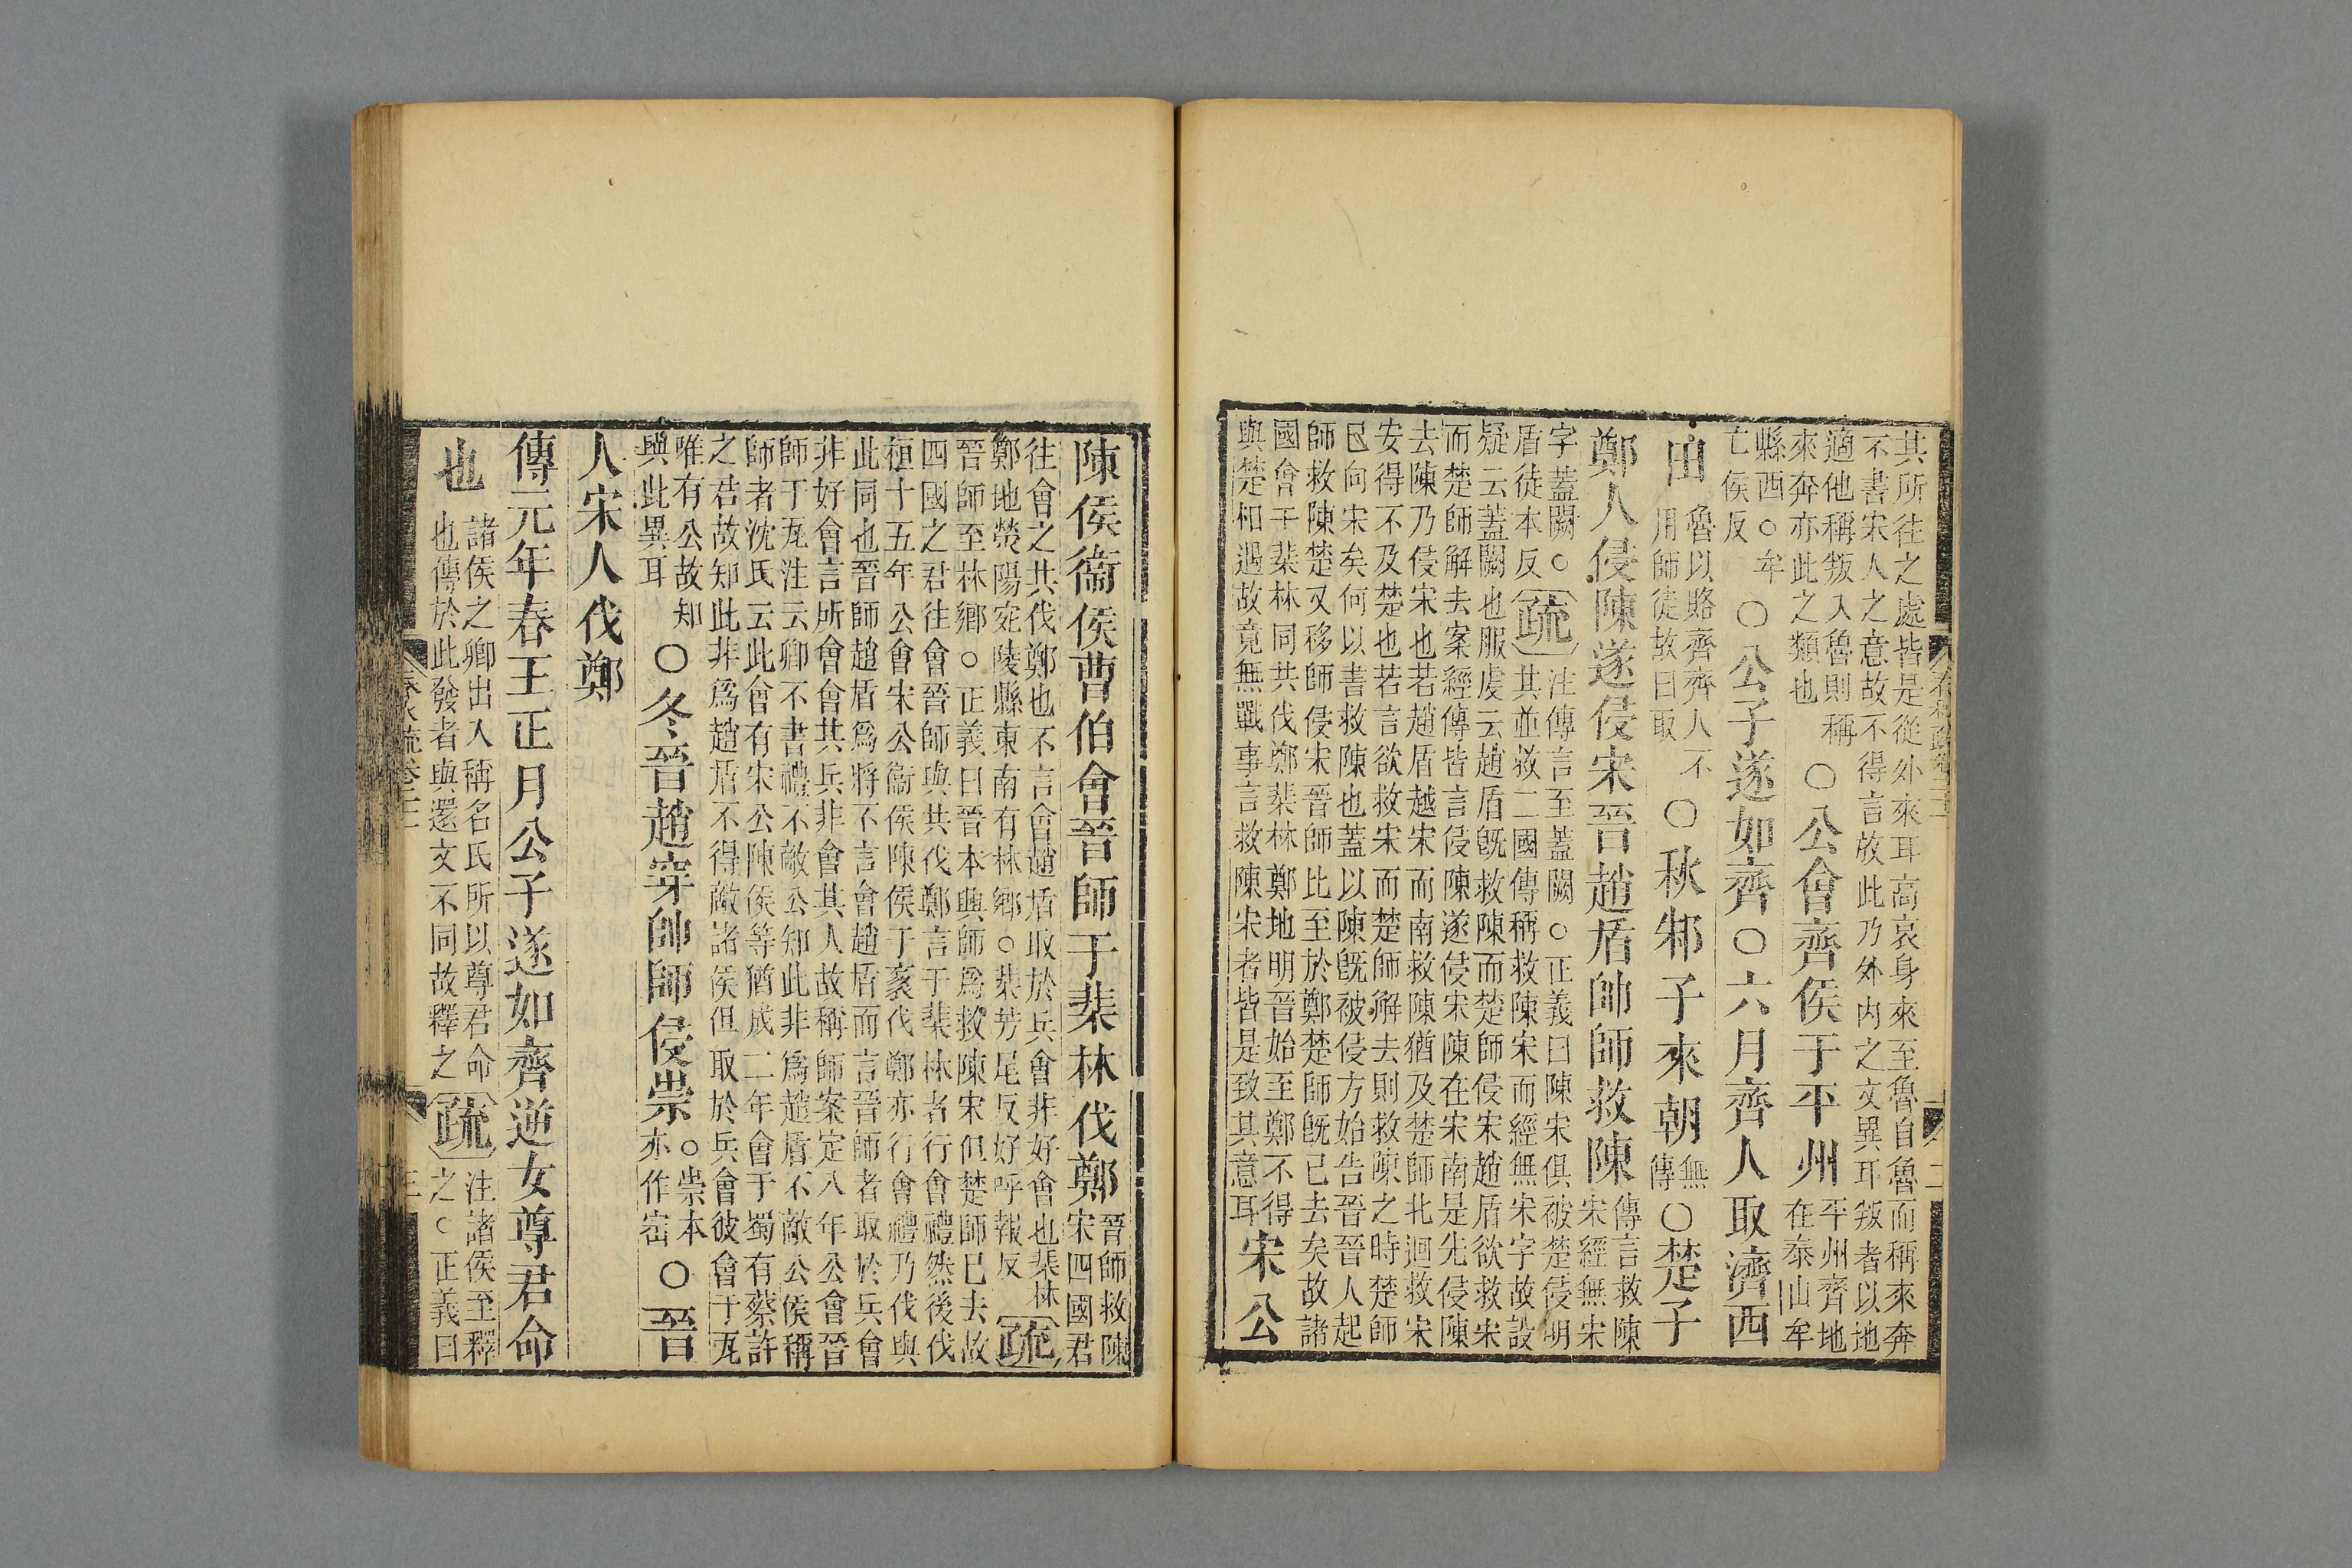 其所往之處皆是從外來耳高哀身來至魯自魯而稱來奔
不書宋人之意故不得言故此乃外内之文異耳叛者以地
適他稱叛入魯則稱
來奔亦此之類也
○公會齊侯于平州
平州齊地
在泰山牟
縣西○牟
亡侯反
○公子遂如齊○六月齊人取濟西
田
魯以賂齊齊人不
用師徒故曰取
○秋邾子來朝
無
傳
○楚子
鄭人侵陳遂侵宋晉趙盾帥師救陳
傳言救陳
宋經無宋
字蓋闕○
盾徒本反
疏
注傳言至蓋闕○正義曰陳宋俱被楚侵明
其並救二國傳稱救陳宋而經無宋字故設
疑云蓋闕也服虔云趙盾旣救陳而楚師侵宋趙盾欲救宋
而楚師解去案經傳皆言侵陳遂侵宋陳在宋南是先侵陳
去陳乃侵宋也若趙盾越宋而南救陳猶及楚師北迴救宋
安得不及楚也若言欲救宋而楚師解去則救陳之時楚師
已向宋矣何以書救陳也蓋以陳旣被侵方始告晉晉人起
師救陳楚又移師侵宋晉師比至於鄭楚師旣已去矣故諸
國會于棐林同共伐鄭棐林鄭地明晉始至鄭不得
與楚相遇故竟無戰事言救陳宋者皆是致其意耳
宋公
陳侯衞侯曹伯會晉師于棐林伐鄭
晉師救陳
宋四國君
往會之共伐鄭也不言會趙盾取於兵會非好會也棐林
鄭地熒陽宛陵縣東南有林鄉○棐芳尾反好呼報反
疏
晉師至林鄉○正義曰晉本興師爲救陳宋但楚師已去故
四國之君往會晉師與共伐鄭言于棐林者行會禮然後伐
桓十五年公會宋公衞侯陳侯于袲伐鄭亦行會禮乃伐與
此同也晉師趙盾爲將不言會趙盾而言晉師者取於兵會
非好會言所會會共兵非會其人故稱師案定八年公會晉
師于瓦注云卿不書禮不敵公知此非爲趙盾不敵公侯稱
師者沈氏云此會有宋公陳侯等猶成二年會于蜀有蔡許
之君故知此非爲趙盾不得敵諸侯但取於兵會彼會于瓦
唯有公故知
與此異耳
○冬晉趙穿帥師侵崇
○崇本
亦作宗
○晉
人宋人伐鄭
傳元年春王正月公子遂如齊逆女尊君命
也
諸侯之卿出入稱名氏所以尊君命
也傳於此發者與還文不同故釋之
疏
注諸侯至釋
之○正義曰
春秋疏卷二十一
三